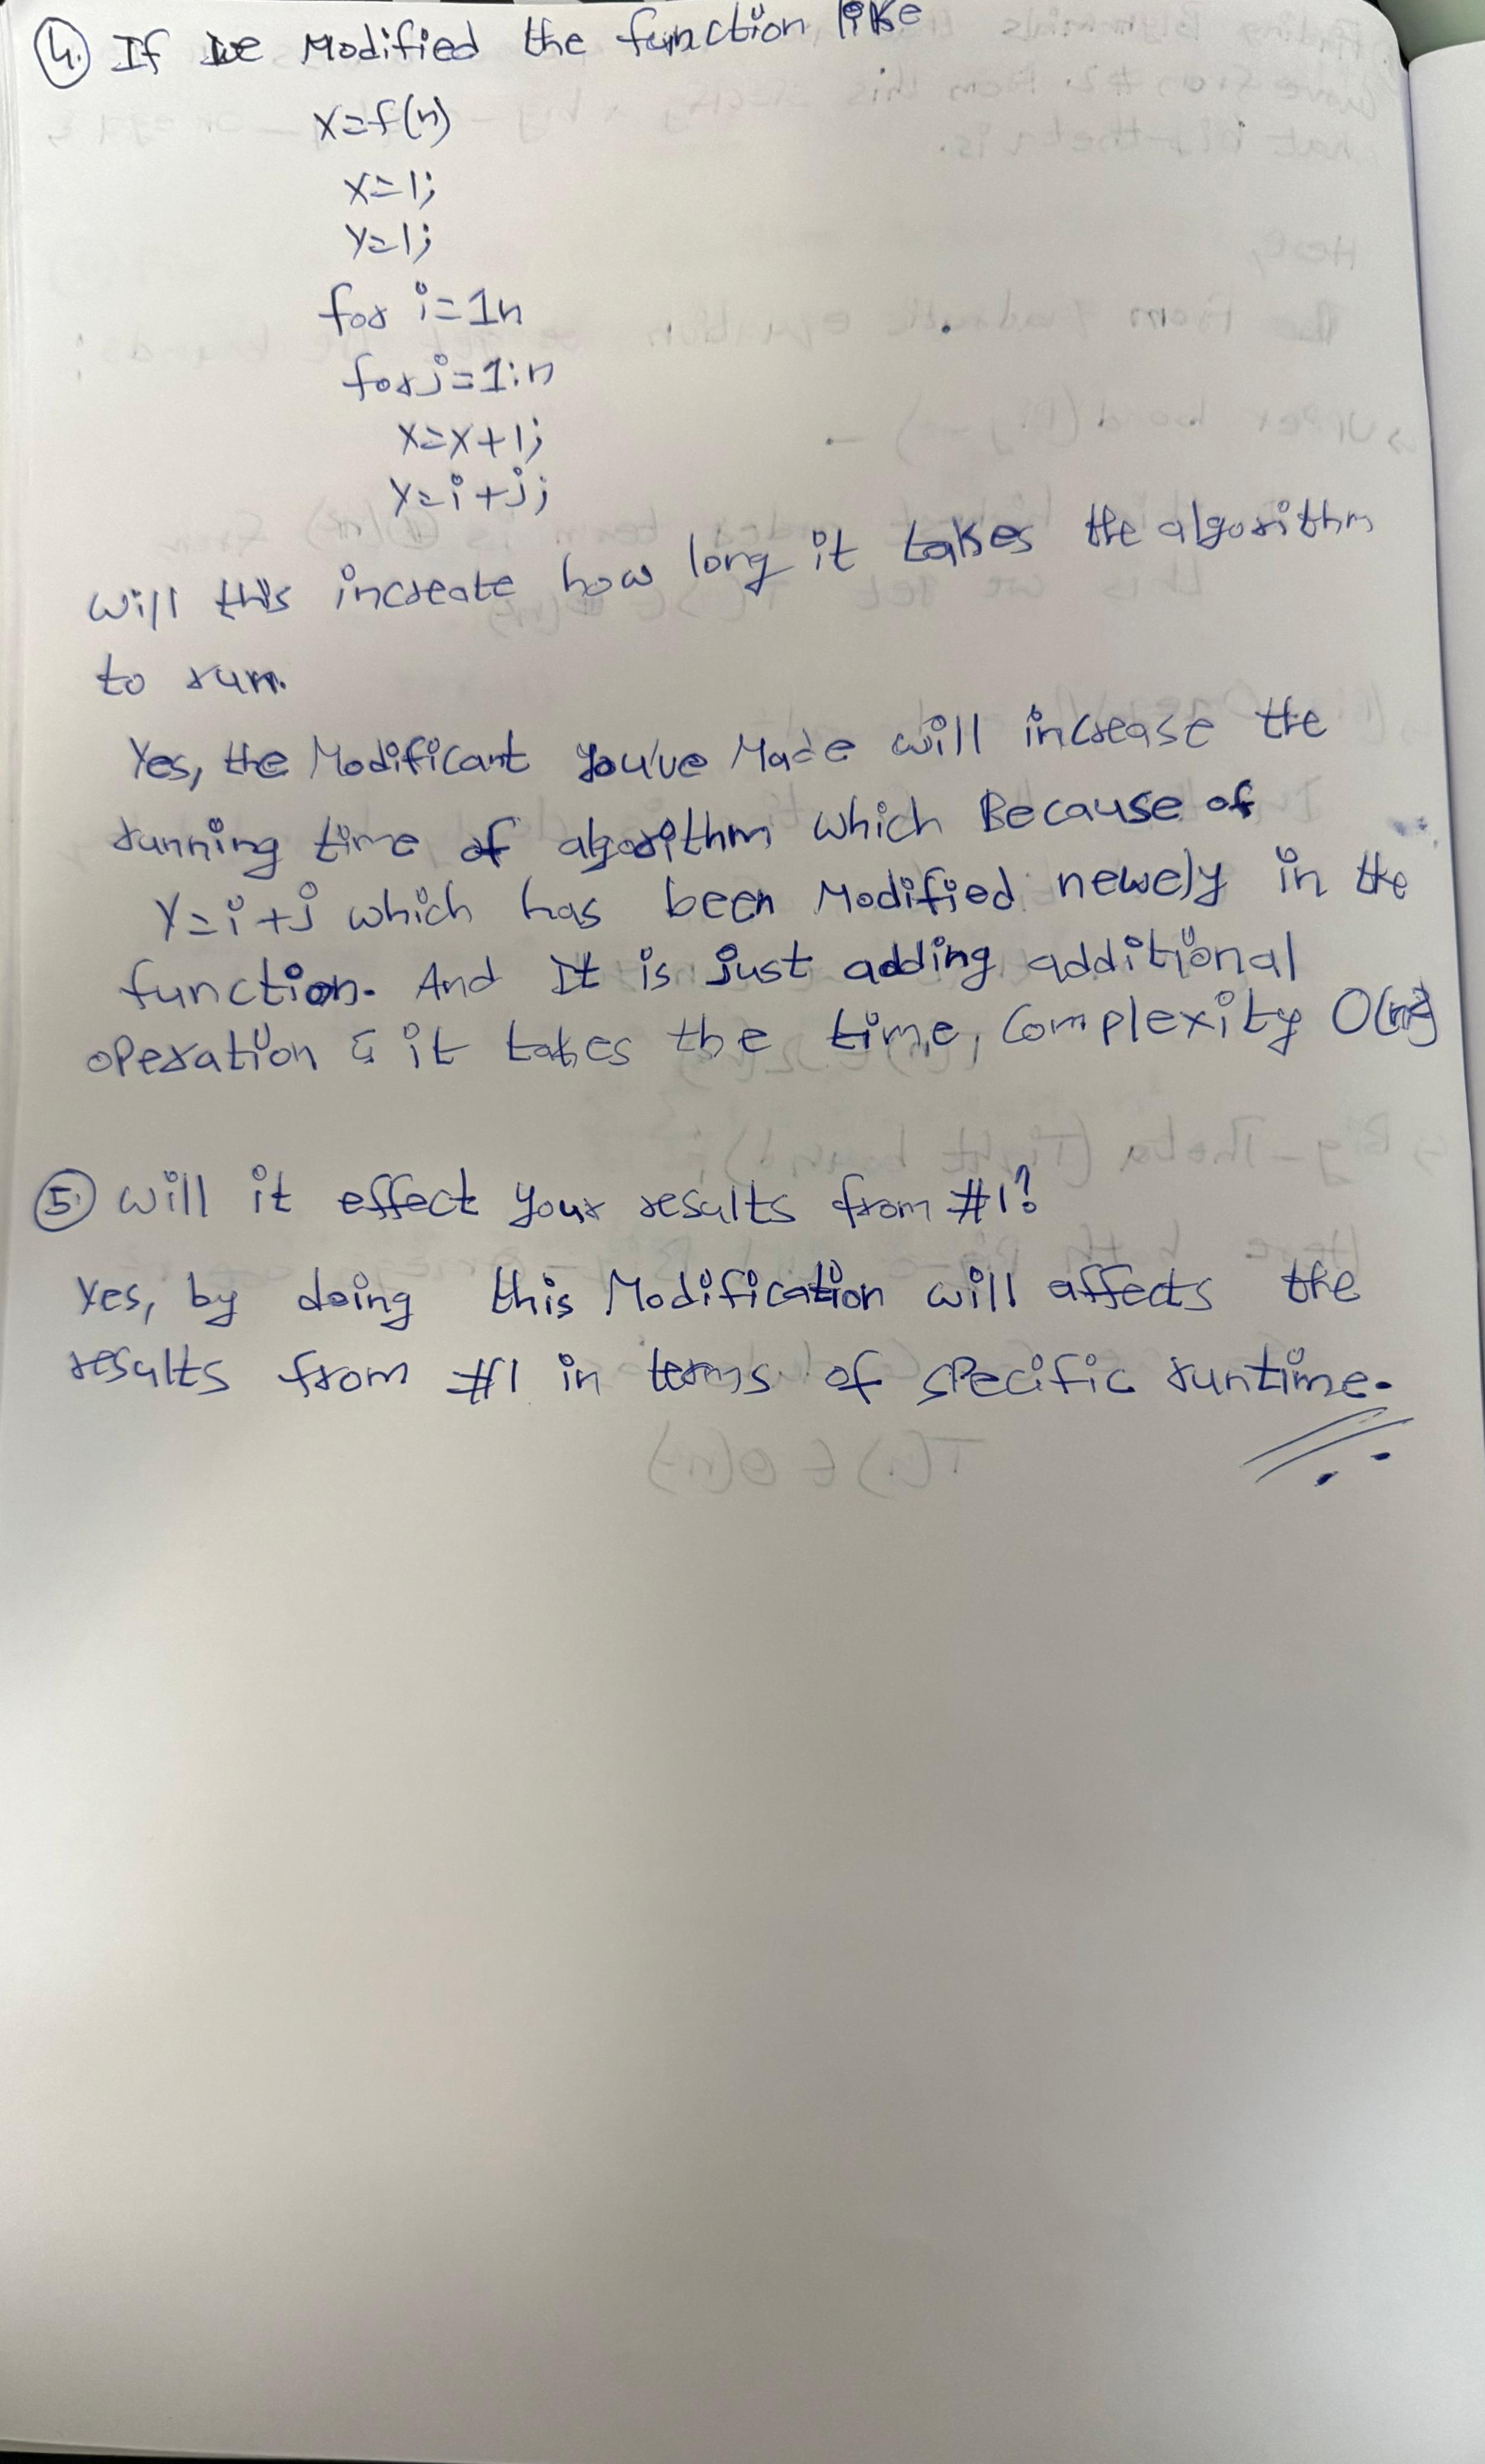 4. If we Modified the function like
x=f(n)
x=1;
y=1;
for i=1n
for j=1:n
x=x+1;
y=i+j;
will this increate how long it takes the algorithm
to run.
Yes, the Modificant you've Made will increase the
running time of algorithm which Because of
y=i+j which has been Modified newely in the
function. And It is just adding additional
operation & it takes the time, Complexity O(n²)
5. will it effect your results from #1?
Yes, by doing this Modification will affects the
results from #1 in terms of specific runtime.